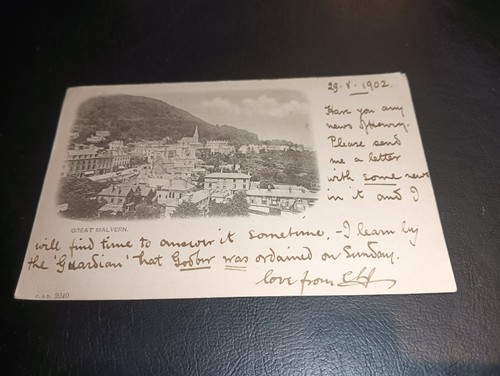 29 - V - 1902.
Have you any
news of Henry.
Please send
me a letter
with some news
in it and I
GREAT MALVERN.
will find time to answer it sometime. - I learn by
the 'Guardian' that Godber was ordained on Sunday.
love from
2040